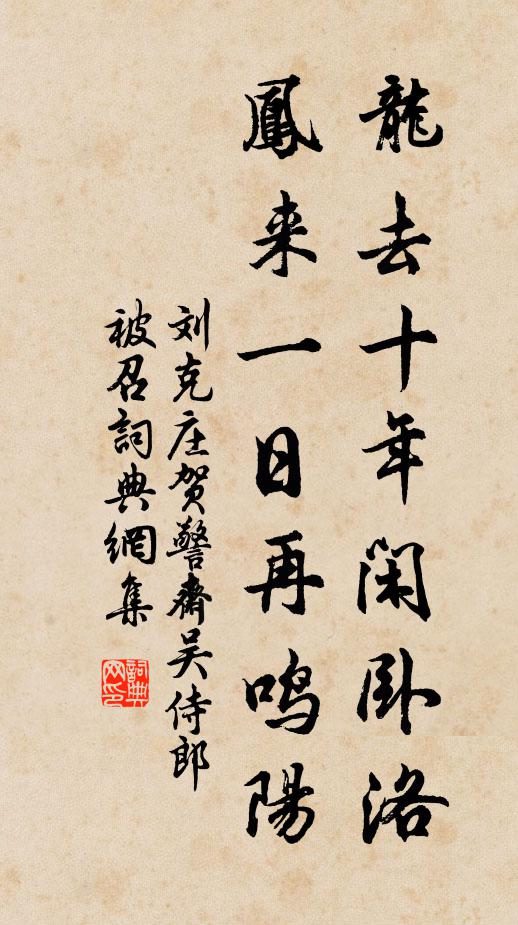 龍去十年閑卧洛
鳳来一日再鸣陽
刘克庄贺警齋吴侍郎
被召詞典網集
詞典
网印